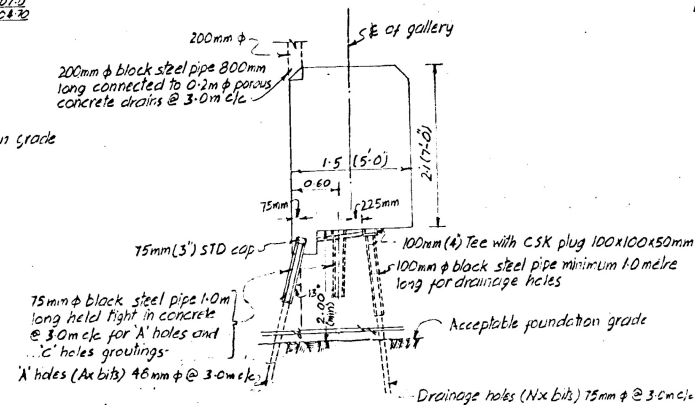 04.70
200mm φ
S & of gallery
200mm φ black steel pipe 800mm
long connected to 0.2m φ porous
concrete drains @ 3.0m c/c
grade
1.5 (5'-0")
2.1 (7'-0")
0.60
75mm
225mm
75mm (3") STD cap
100mm (4") Tee with CSK plug 100x100x50mm
100mm φ black steel pipe minimum 1.0 metre
long for drainage holes
13°
2.00 (min)
75mm φ black steel pipe 1.0m
long held tight in concrete
@ 3.0m c/c for 'A' holes and
'C' holes groutings
Acceptable foundation grade
'A' holes (Ax bits) 46mm φ @ 3.0m c/c
Drainage holes (Nx bits) 75mm φ @ 3.0m c/c